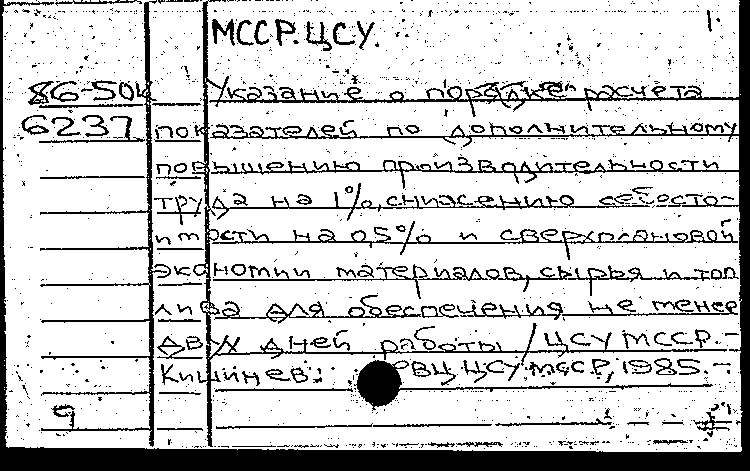 МССР. ЦСУ. 1.
86-50к Указание о порядке расчета
6237 показателей по дополнительному
повышению производительности
труда на 1%, снижению себесто-
имости на 0,5% и сверхплановой
экономии материалов, сырья и топ
лива для обеспечения не менее
двух дней работы / ЦСУ МССР. -
Кишинев: РВЦ ЦСУ МССР, 1985. -
9